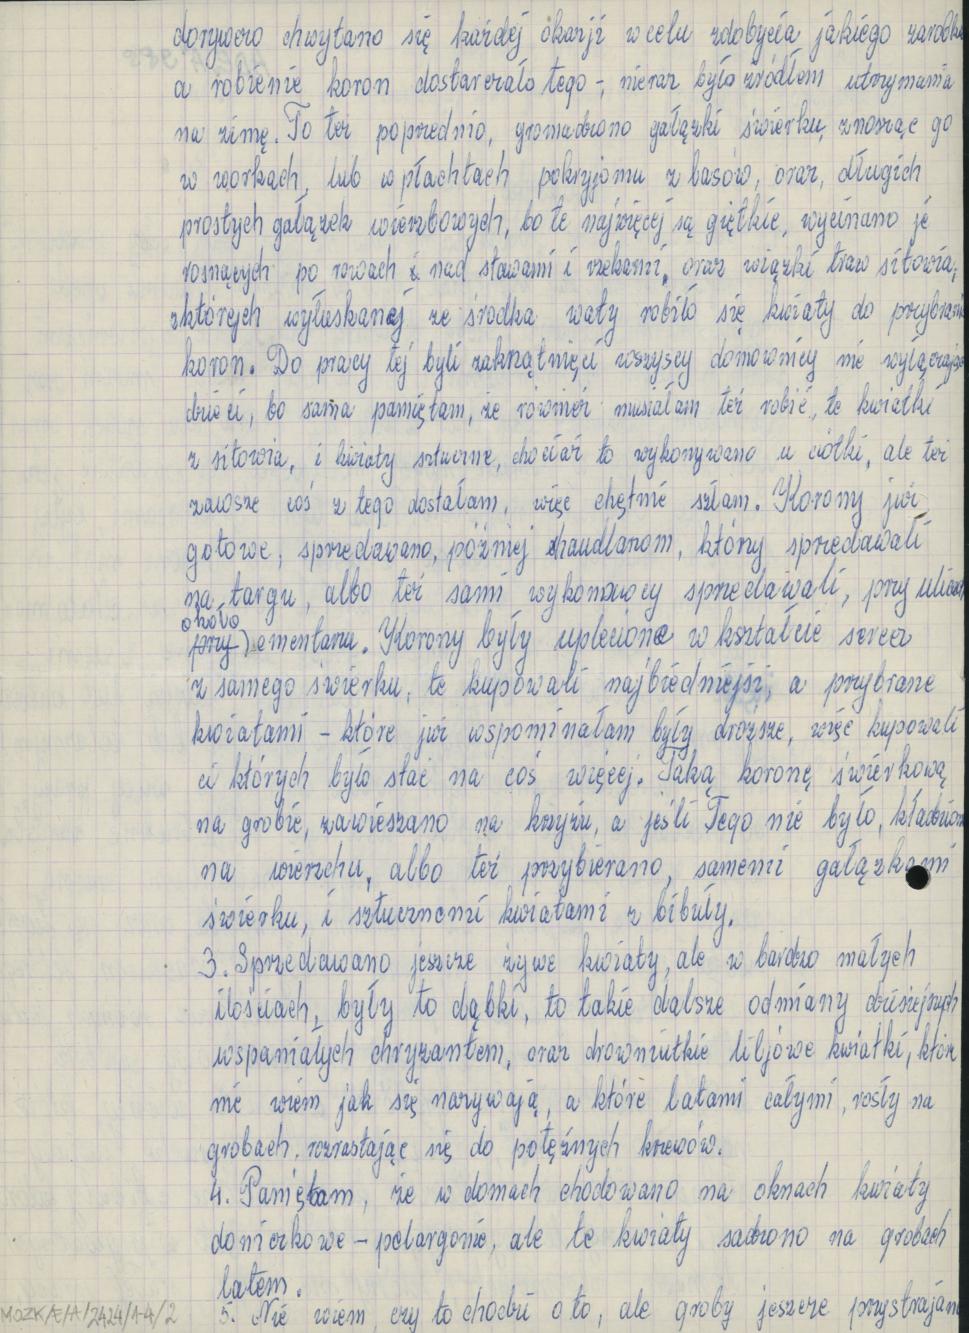 dorywczo chwytano się każdej okazji w celu zdobycia jakiego zarobku
a robienie koron dostarczało tego -, nieraz było źródłem utrzymania
na zimę. To też poprzednio, gromadzono gałązki świerku, znosząc go
w workach, lub w płachtach pokryjomu z lasów, oraz, długich
prostych gałązek wierzbowych, bo te najwięcej są giętkie, wycinano je
rosnących po rowach i nad stawami i rzekami, oraz wiązki traw sitowia,
z których wyłuskanej ze środka waty robiło się kwiaty do przybrania
koron. Do pracy tej byli zaknątnięci wszyscy domownicy nie wyłączając
dzieci, bo sama pamiętam, że również musiałam też robić, te kwiatki
z sitowia, i kwiaty sztuczne, chociaż to wykonywano u ciotki, ale też
zawsze coś z tego dostałam, więc chętnie szłam. Korony już
gotowe, sprzedawano, później handlarzom, który sprzedawali
na targu, albo też sami wykonawcy sprzedawali, przy ulicach
około
przy cmentarzu. Korony były uplecione w kształcie serca
z samego świerku, te kupowali najbiedniejsi, a przybrane
kwiatami - które już wspominałam były droższe, więc kupowali
ci których było stać na coś więcej. Taką koronę świerkową
na grobie, zawieszano na krzyżu, a jeśli Tego nie było, kładziono
na wierzchu, albo też przybierano, samemi gałązkami
świerku, i sztucznemi kwiatami z bibuły.
3. Sprzedawano jeszcze żywe kwiaty, ale w bardzo małych
ilościach, były to dąbki, to takie dalsze odmiany dzisiejszych
wspaniałych chryzantem, oraz drowniutkie liljowe kwiatki, któr
nie wiem jak się nazywają, a które latami całymi, rosły na
grobach, rozrastając się do potężnych krzewów.
4. Pamiętam, że w domach chodowano na oknach kwiaty
doniczkowe - pelargonie, ale te kwiaty sadzono na grobach
latem.
5. Nie wiem, czy to chodzi o to, ale groby jeszcze przystrajano
MOZK/Æ/A/2424/1-4/2